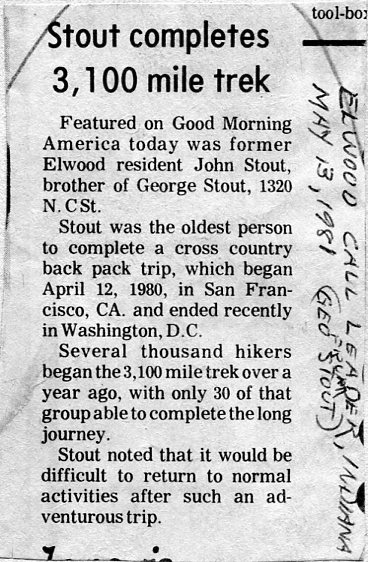 tool-box
Stout completes
3,100 mile trek
Featured on Good Morning
America today was former
Elwood resident John Stout,
brother of George Stout, 1320
N. C St.
Stout was the oldest person
to complete a cross country
back pack trip, which began
April 12, 1980, in San Fran-
cisco, CA. and ended recently
in Washington, D.C.
Several thousand hikers
began the 3,100 mile trek over a
year ago, with only 30 of that
group able to complete the long
journey.
Stout noted that it would be
difficult to return to normal
activities after such an ad-
venturous trip.
ELWOOD CALL LEADER, INDIANA
MAY 13, 1981 (FROM
GEO STOUT)